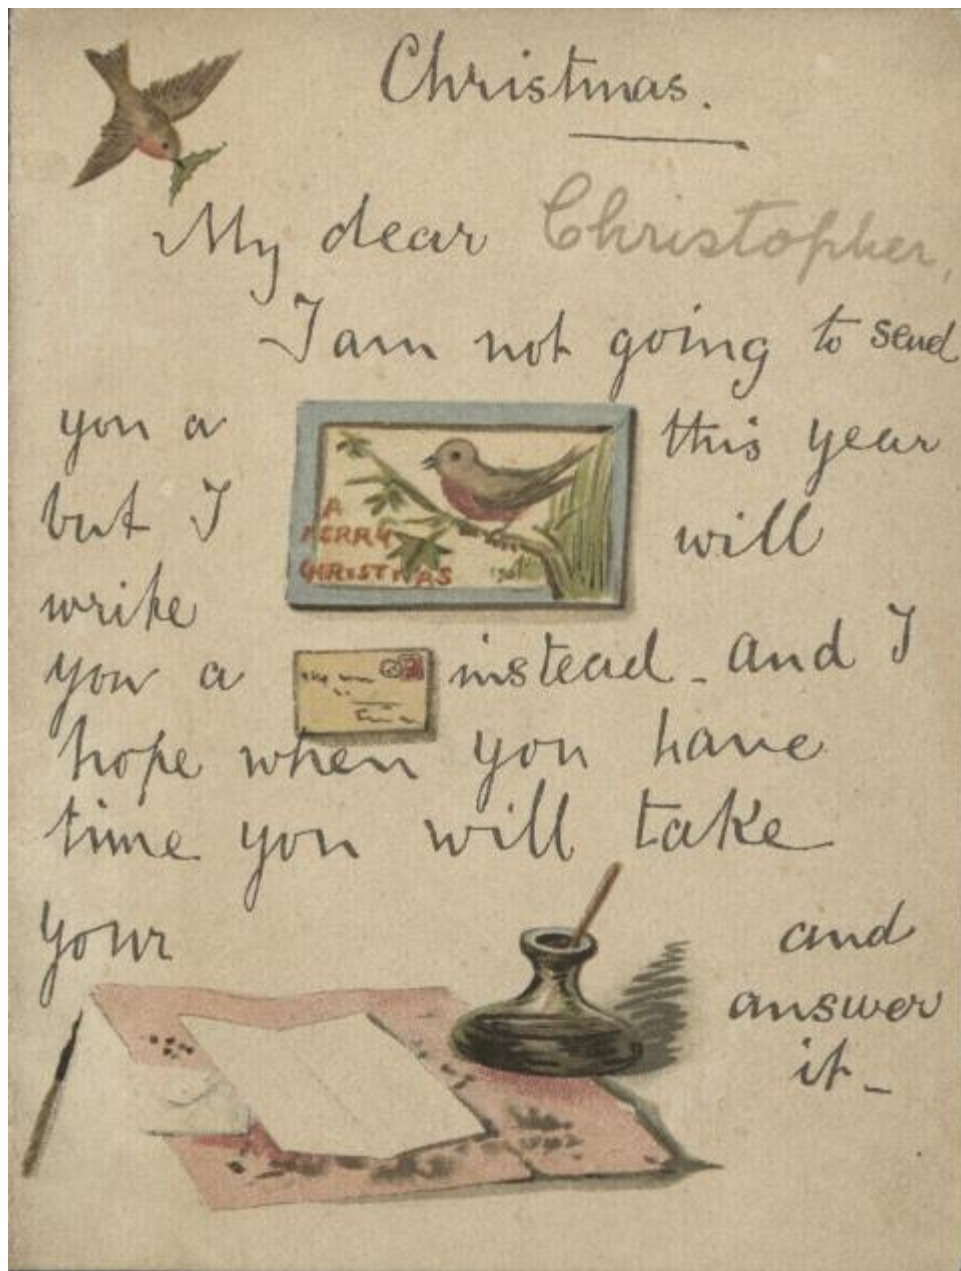 Christmas.
My dear Christopher,
I am not going to send
you a
A
MERRY
CHRISTMAS
this year
but I will
write
you a instead - and I
hope when you have
time you will take
your and
answer
it -